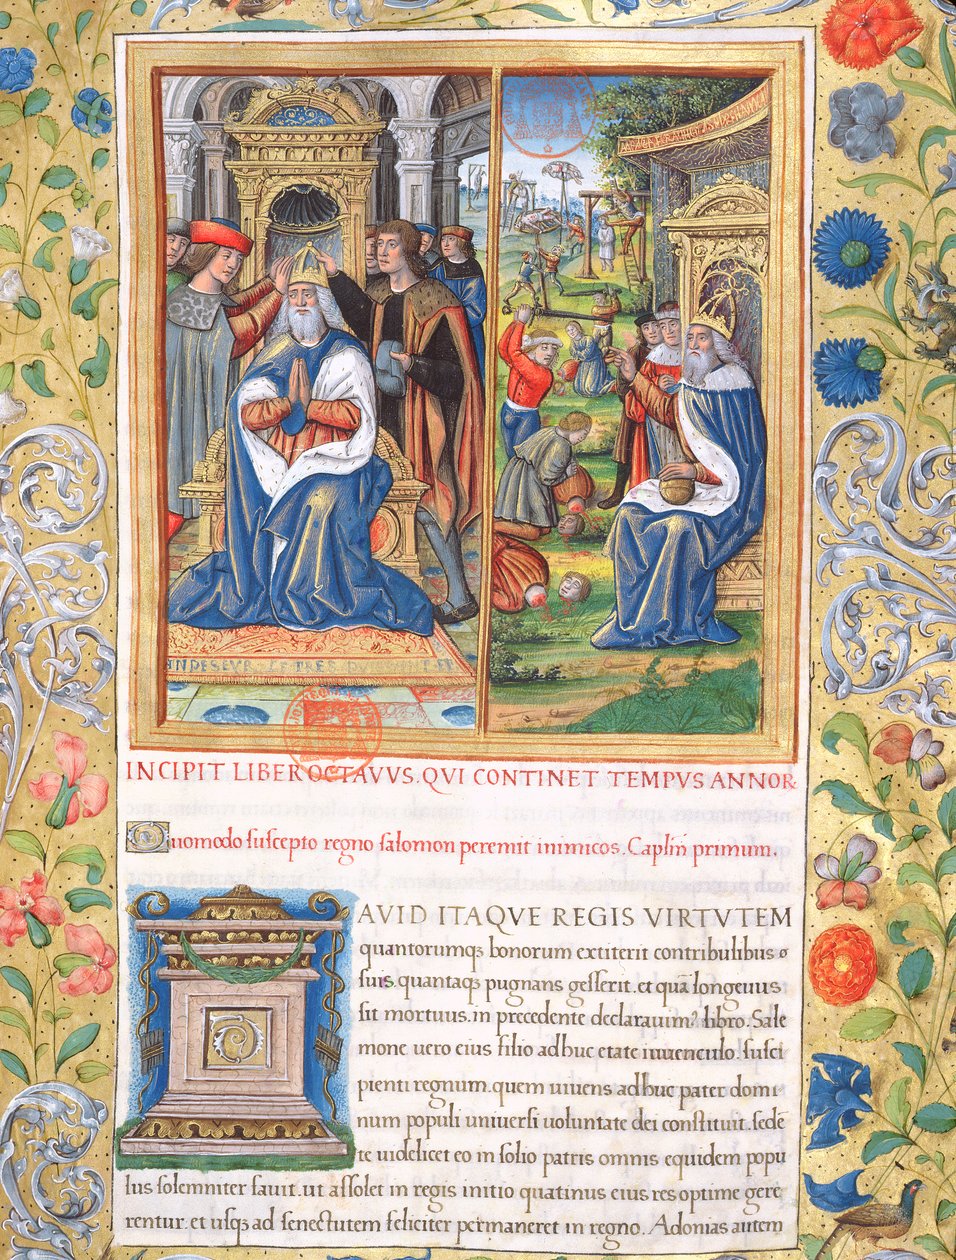 INCIPIT LIBER OCTAVVS. QVI CONTINET TEMPVS ANNOR
Quomodo suscepto regno salomon peremit inimicos. Caplm̄ primum.
DAVID ITAQVE REGIS VIRTVTEM
quantorumqꝫ bonorum extiterit contribulibus
suis. quantaqꝫ pugnans gesserit. et quā longeuus
sit mortuus. in precedente declarauimꝰ libro. Salo
mone uero eius filio adhuc etate iuuenculo. susci
pienti regnum. quem uiuens adhuc pater domi
num populi uniuersi uoluntate dei constituit. sedē
te uidelicet eo in solio patris omnis equidem popu
lus solemniter fauit. ut assolet in regis initio quatimus eius res optime gere
rentur. et usqꝫ ad senectutem feliciter permaneret in regno. Adonias autem